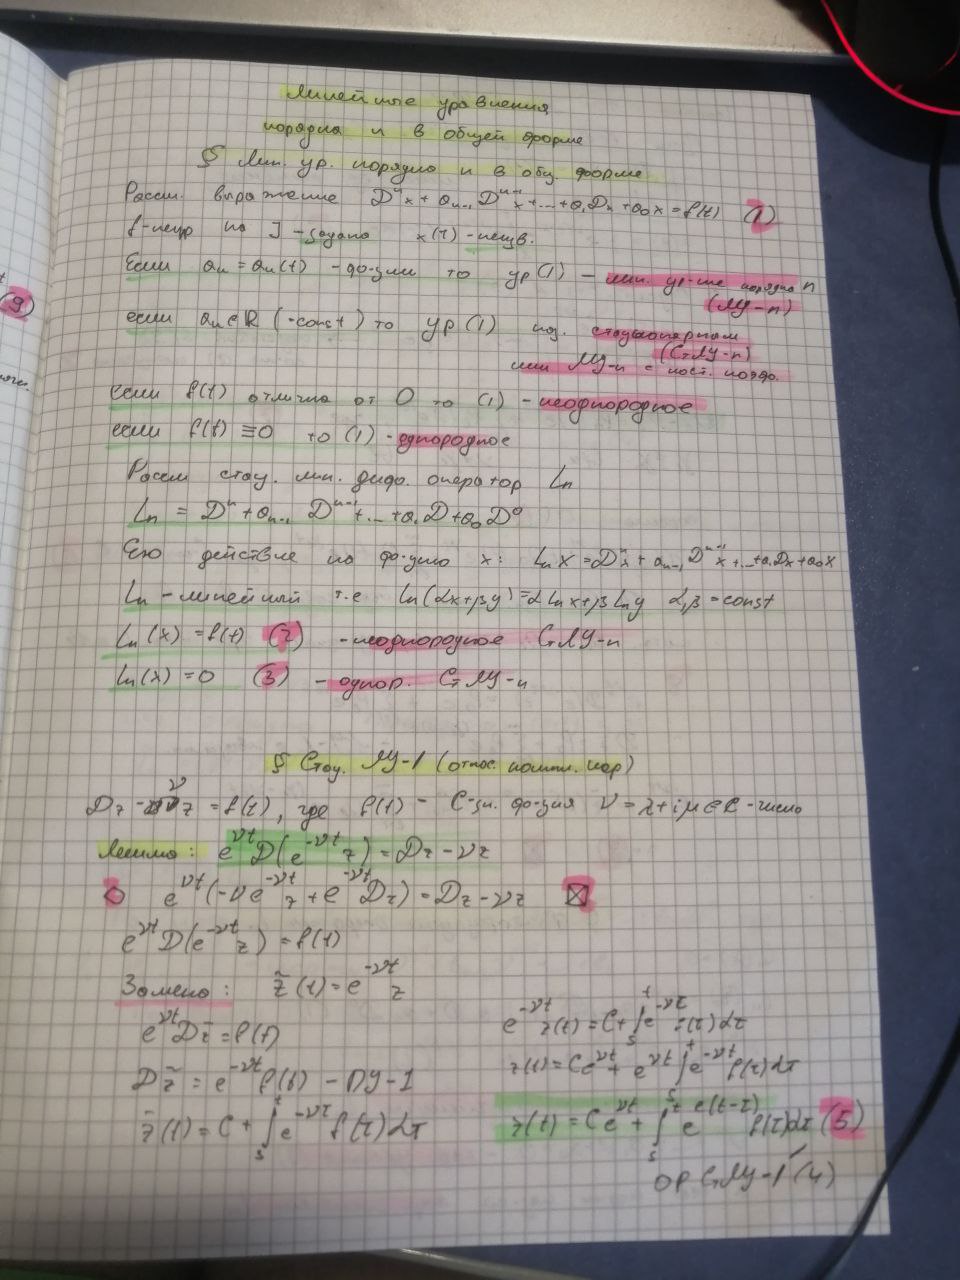 Линейные уравнения
порядка n в общей форме
§ Лин. ур. порядка n в общ. форме
Рассм. выражение Dⁿx + aₙ₋₁Dⁿ⁻¹x + ... + a₁Dx + a₀x = f(t) (1)
f - непр на J - задана x(t) - неизв.
Если aₙ = aₙ(t) - ф-ции то ур (1) - лин. ур-ние порядка n
(ЛУ-n)
если aₙ ∈ ℝ (-const) то ур (1) наз. стационарным
(СтЛУ-n)
или ЛУ-n с пост. коэф.
если f(t) отлична от 0 то (1) - неоднородное
если f(t) ≡ 0 то (1) - однородное
Рассм стац. лин. дифф. оператор Lₙ
Lₙ = Dⁿ + aₙ₋₁ Dⁿ⁻¹ + ... + a₁D + a₀D⁰
Его действие на ф-цию x: Lₙx = Dⁿx + aₙ₋₁Dⁿ⁻¹x + ... + a₁Dx + a₀x
Lₙ - линейный т.е Lₙ(αx + βy) = αLₙx + βLₙy α,β = const
Lₙ(x) = f(t) (2) - неоднородное СтЛУ-n
Lₙ(x) = 0 (3) - однор. СтЛУ-n
§ Стац. ЛУ-1 (относ. компл. пер)
Dz - νz = f(t), где f(t) - C-зн. ф-ция ν = λ + iμ ∈ C - число
Лемма: e^{νt}D(e^{-νt}z) = Dz - νz
e^{νt}(-νe^{-νt}z + e^{-νt}Dz) = Dz - νz ⊠
e^{νt}D(e^{-νt}z) = f(t)
Замена: z̃(t) = e^{-νt}z
e^{νt}Dz̃ = f(t)
Dz̃ = e^{-νt}f(t) - ДУ-1
z̃(t) = C + ∫ₛᵗ e^{-ντ} f(τ)dτ
e^{-νt}z(t) = C + ∫ₛᵗ e^{-ντ} f(τ)dτ
z(t) = Ce^{νt} + e^{νt}∫ₛᵗ e^{-ντ}f(τ)dτ
z(t) = Ce^{νt} + ∫ₛᵗ e^{ν(t-τ)} f(τ)dτ (5)
ОР СтЛУ-1 (4)